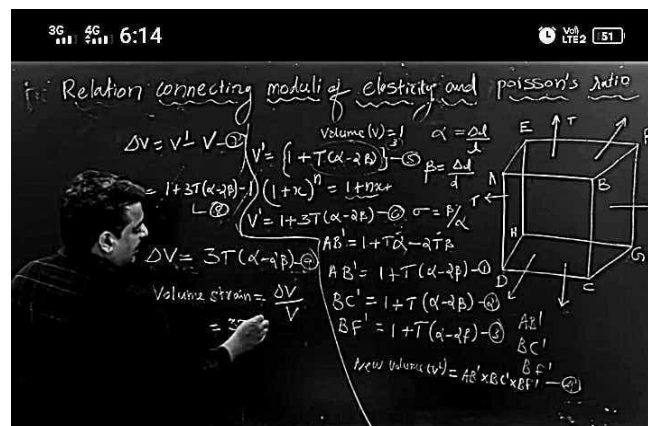 3G 4G 6:14
Vo) LTE2 51
Relation connecting moduli of elasticity and poisson's ratio
ΔV = V' - V - ⑦
= 1+3T(α-2β)-1
⑧
ΔV = 3T(α-2β) - ⑨
Volume strain = ΔV/V
= 3T
Volume (V) = 1
V' = {1+T(α-2β)}³ - ⑤
(1+x)ⁿ = 1+nx+
V' = 1+3T(α-2β) - ⑥
α = Δl/l
β = Δd/d
σ = β/α
AB' = 1+Tα-2Tβ
AB' = 1+T(α-2β) - ①
BC' = 1+T(α-2β) - ②
BF' = 1+T(α-2β) - ③
AB'
BC'
BF'
New Volume (V') = AB'×BC'×BF' - ④
E
T
F
A
B
T
H
G
D
C